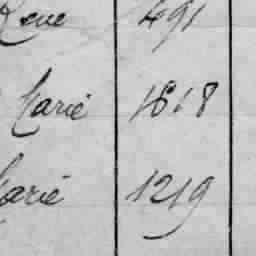 René 491
Marié 1818
Marié 1219